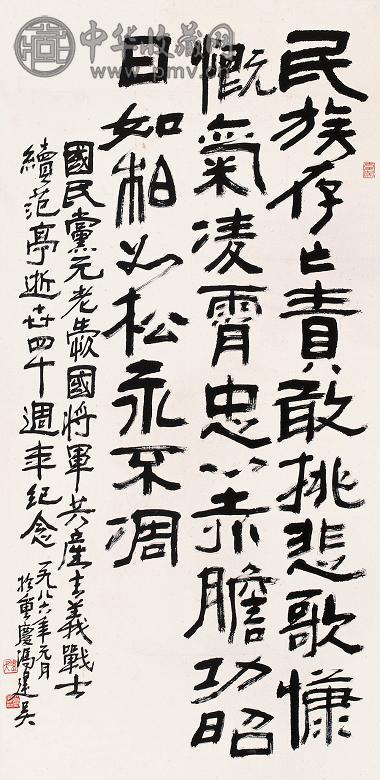 民族存亡責敢挑悲歌慷
慨氣凌霄忠心赤膽功昭
日如柏如松永不凋
國民黨元老愛國將軍共產主義戰士
續范亭逝世四十週年紀念 一九八六年元月
於重慶馮建吳
中华收藏网